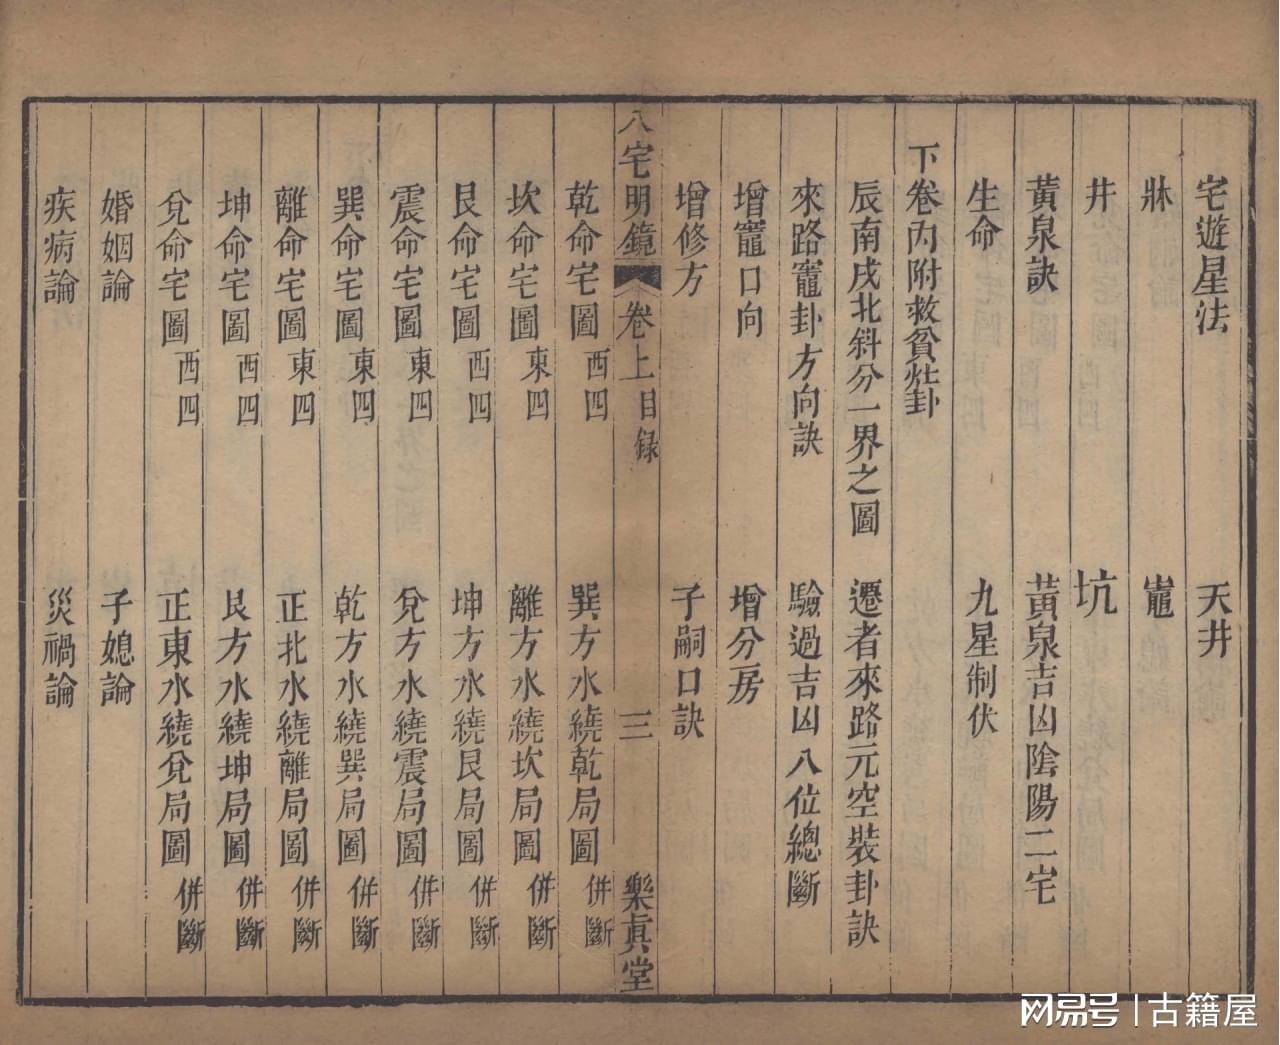 宅遊星法　天井
牀　竈
井　坑
黃泉訣　黃泉吉凶陰陽二宅
生命　九星制伏
下卷內附救貧灶卦
辰南戌北斜分一界之圖　遷者來路元空裝卦訣
來路竈卦方向訣　驗過吉凶八位總斷
增竈口向　增分房
增修方　子嗣口訣
八宅明鏡　卷上目録　三　樂真堂
乾命宅圖西四　巽方水繞乾局圖併斷
坎命宅圖東四　離方水繞坎局圖併斷
艮命宅圖西四　坤方水繞艮局圖併斷
震命宅圖東四　兌方水繞震局圖併斷
巽命宅圖東四　乾方水繞巽局圖併斷
離命宅圖東四　正北水繞離局圖併斷
坤命宅圖西四　艮方水繞坤局圖併斷
兌命宅圖西四　正東水繞兌局圖併斷
婚姻論　子媳論
疾病論　災禍論
网易号|古籍屋